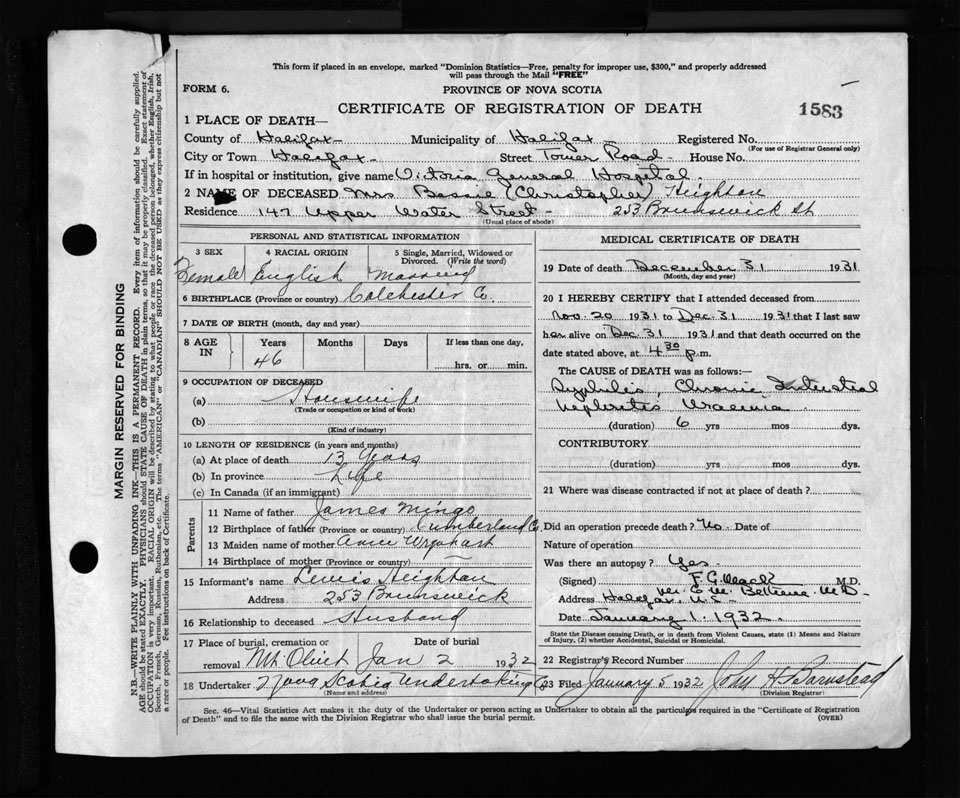 This form if placed in an envelope, marked "Dominion Statistics—Free, penalty for improper use, $300," and properly addressed
will pass through the Mail "FREE"
FORM 6.
PROVINCE OF NOVA SCOTIA
CERTIFICATE OF REGISTRATION OF DEATH
1583
1 PLACE OF DEATH—
County of Halifax Municipality of Halifax Registered No.
(For use of Registrar General only)
City or Town Halifax Street Tower Road House No.
If in hospital or institution, give name Victoria General Hospital.
2 NAME OF DECEASED Mrs Bessie (Christopher) Heighton
Residence 147 Upper Water Street - 253 Brunswick St
(Usual place of abode)
PERSONAL AND STATISTICAL INFORMATION
3 SEX 4 RACIAL ORIGIN 5 Single, Married, Widowed or
Divorced. (Write the word)
Female English Married
6 BIRTHPLACE (Province or country) Colchester Co.
7 DATE OF BIRTH (month, day and year)
8 AGE IN Years Months Days If less than one day,
46 hrs. or min.
9 OCCUPATION OF DECEASED
(a) Housewife
(Trade or occupation or kind of work)
(b)
(Kind of industry)
10 LENGTH OF RESIDENCE (in years and months)
(a) At place of death 13 Years
(b) In province Life
(c) In Canada (if an immigrant)
Parents
11 Name of father James Mingo
12 Birthplace of father (Province or country) Cumberland Co.
13 Maiden name of mother Annie Urquhart
14 Birthplace of mother (Province or country)
15 Informant's name Lewis Heighton
Address 253 Brunswick
16 Relationship to deceased Husband
17 Place of burial, cremation or Date of burial
removal Mt. Olivet Jan 2 1932
18 Undertaker Nova Scotia Undertaking Co
(Name and address)
MEDICAL CERTIFICATE OF DEATH
19 Date of death December 31 1931
(Month, day and year)
20 I HEREBY CERTIFY that I attended deceased from
Nov. 20 1931 to Dec. 31 1931 that I last saw
her alive on Dec. 31 1931 and that death occurred on the
date stated above, at 4 30 p.m.
The CAUSE OF DEATH was as follows:—
Syphilis, Chronic Interstitial
Nephritis Uraemia
(duration) 6 yrs mos dys.
CONTRIBUTORY
(duration) yrs mos dys.
21 Where was disease contracted if not at place of death?
Did an operation precede death? No Date of
Nature of operation
Was there an autopsy? Yes.
(Signed) F. G. Mack M.D.
per E. M. Bethune M.D.
Address Halifax, N.S.
Date January 1. 1932.
State the Disease causing Death, or in death from Violent Causes, state (1) Means and Nature
of Injury, (2) whether Accidental, Suicidal or Homicidal.
22 Registrar's Record Number
23 Filed January 5 1932 John H Barnstead
(Division Registrar)
Sec. 46—Vital Statistics Act makes it the duty of the Undertaker or person acting as Undertaker to obtain all the particulars required in the "Certificate of Registration
of Death" and to file the same with the Division Registrar who shall issue the burial permit.
(OVER)
MARGIN RESERVED FOR BINDING
N.B.—WRITE PLAINLY WITH UNFADING INK—THIS IS A PERMANENT RECORD. Every item of information should be carefully supplied.
AGE should be stated EXACTLY. PHYSICIANS should STATE CAUSE OF DEATH in plain terms, so that it may be properly classified. Exact statement of
OCCUPATION is very important. RACIAL ORIGIN will be described by stating to what people or race the deceased person belonged, whether English, Irish,
Scotch, French, German, Russian, Ruthenian, etc. The terms "AMERICAN" or "CANADIAN" SHOULD NOT BE USED as they express citizenship but not
a race or people. See instructions on back of Certificate.